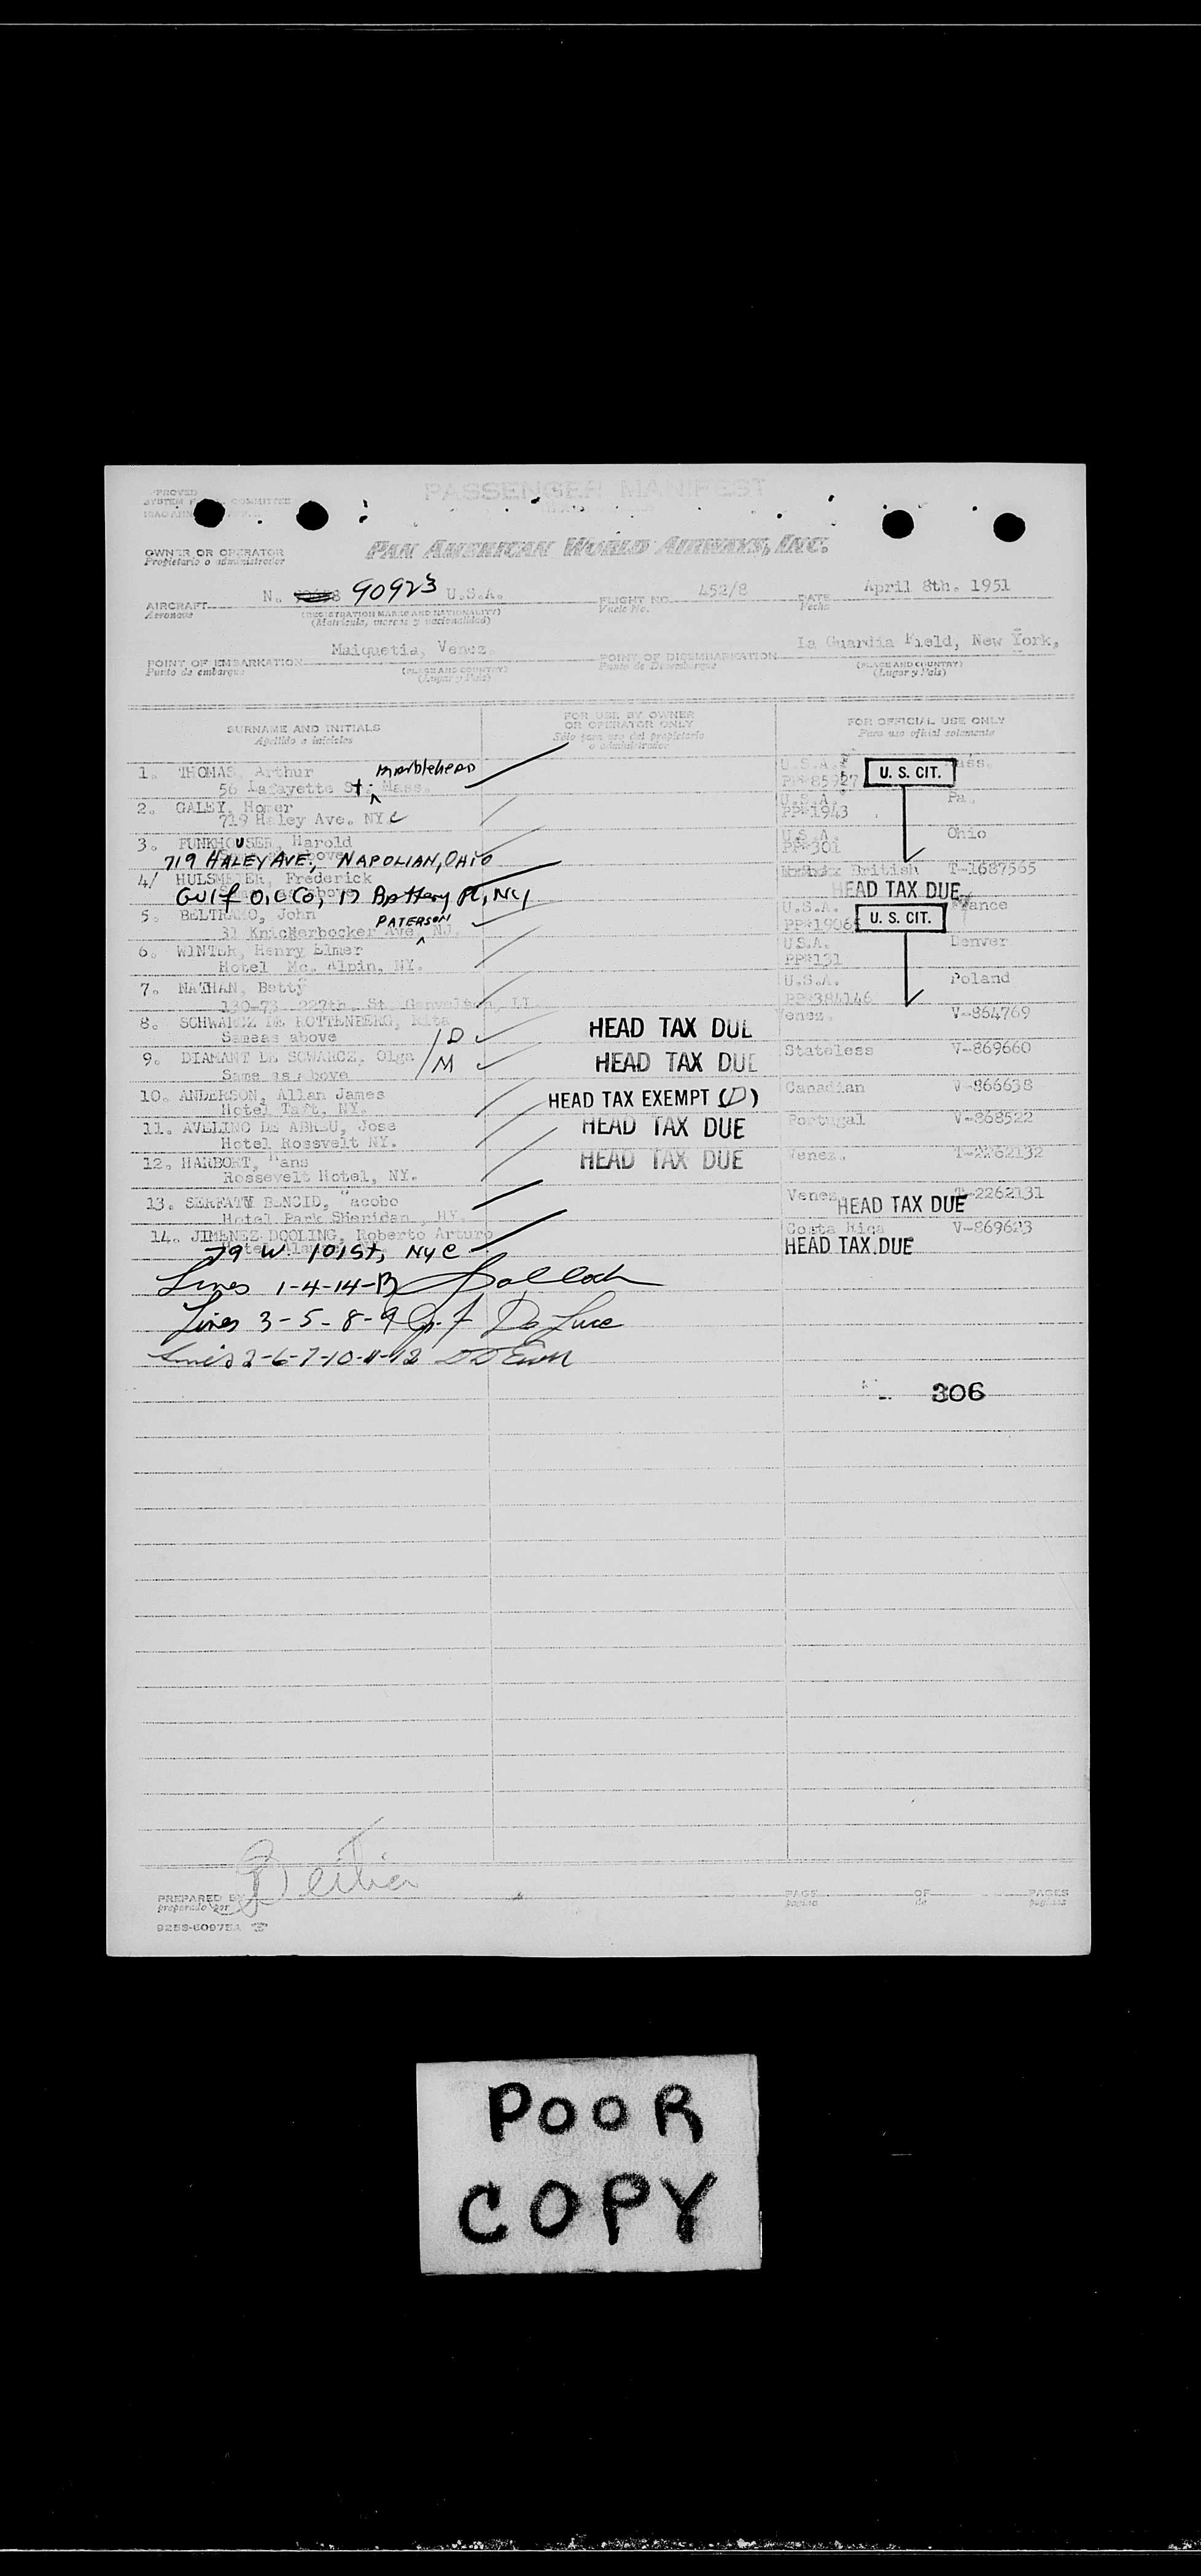 PASSENGER MANIFEST
PAN AMERICAN WORLD AIRWAYS, INC.
OWNER OR OPERATOR
Propietario o administrador
AIRCRAFT N. 90923 U.S.A. FLIGHT NO. 452/8 DATE April 8th. 1951
Aeronave (REGISTRATION MARKS AND NATIONALITY) Vuelo No. Fecha
(Matricula, marcas y nacionalidad)
POINT OF EMBARKATION Maiquetia, Venez. POINT OF DISEMBARKATION La Guardia Field, New York,
Punto de embarque (PLACE AND COUNTRY) Punto de Desembarque (PLACE AND COUNTRY)
(Lugar y País) (Lugar y País)
SURNAME AND INITIALS FOR USE BY OWNER OR OPERATOR ONLY FOR OFFICIAL USE ONLY
Apellido e iniciales Sólo para uso del propietario o administrador Para uso oficial solamente
1. THOMAS, Arthur Marblehead U.S.A. Mass.
56 Lafayette St. Mass. PP#85927 U. S. CIT.
2. GALEY, Homer U.S.A. Pa.
719 Haley Ave. NYC PP#1943
3. FUNKHOUSER, Harold U.S.A. Ohio
719 HALEY AVE., NAPOLIAN, OHIO PP#301
4/ HULSMEYER, Frederick British T-1687565
Gulf Oil Co, 17 Battery Pl, NY HEAD TAX DUE
5. BELTRAMO, John PATERSON U.S.A. France
31 Knickerbocker Ave, NJ. PP#1906 U. S. CIT.
6. WINTER, Henry Elmer U.S.A. Denver
Hotel Mc. Alpin, NY. PP#131
7. NATHAN, Betty U.S.A. Poland
130-73 227th, St. LI. PP#384146
8. SCHWARCZ DE ROTTENBERG, Rita HEAD TAX DUE Venez. V-864769
Sameas above /D
9. DIAMANT DE SCWARCZ, Olga HEAD TAX DUE Stateless V-869660
Same as above /M
10. ANDERSON, Allan James HEAD TAX EXEMPT (D) Canadian V-866638
Hotel Taft, NY.
11. AVELINO DE ABREU, Jose HEAD TAX DUE Portugal V-868522
Hotel Rossvelt NY.
12. HARBORT, Hans HEAD TAX DUE Venez. T-2262132
Rossevelt Hotel, NY.
13. SERFATY BENCID, Jacobo Venez. T-2262131
Hotel Park Sheridan, NY. HEAD TAX DUE
14. JIMENEZ DOOLING, Roberto Arturo Costa Rica V-869623
79 W 101st, NYC HEAD TAX DUE
Lines 1-4-14-13
Lines 3-5-8-9 De Luce
Lines 2-6-7-10-11-12
306
PREPARED BY PAGE OF PAGES
preparado por pagina de paginas
9253-60975A
POOR
COPY